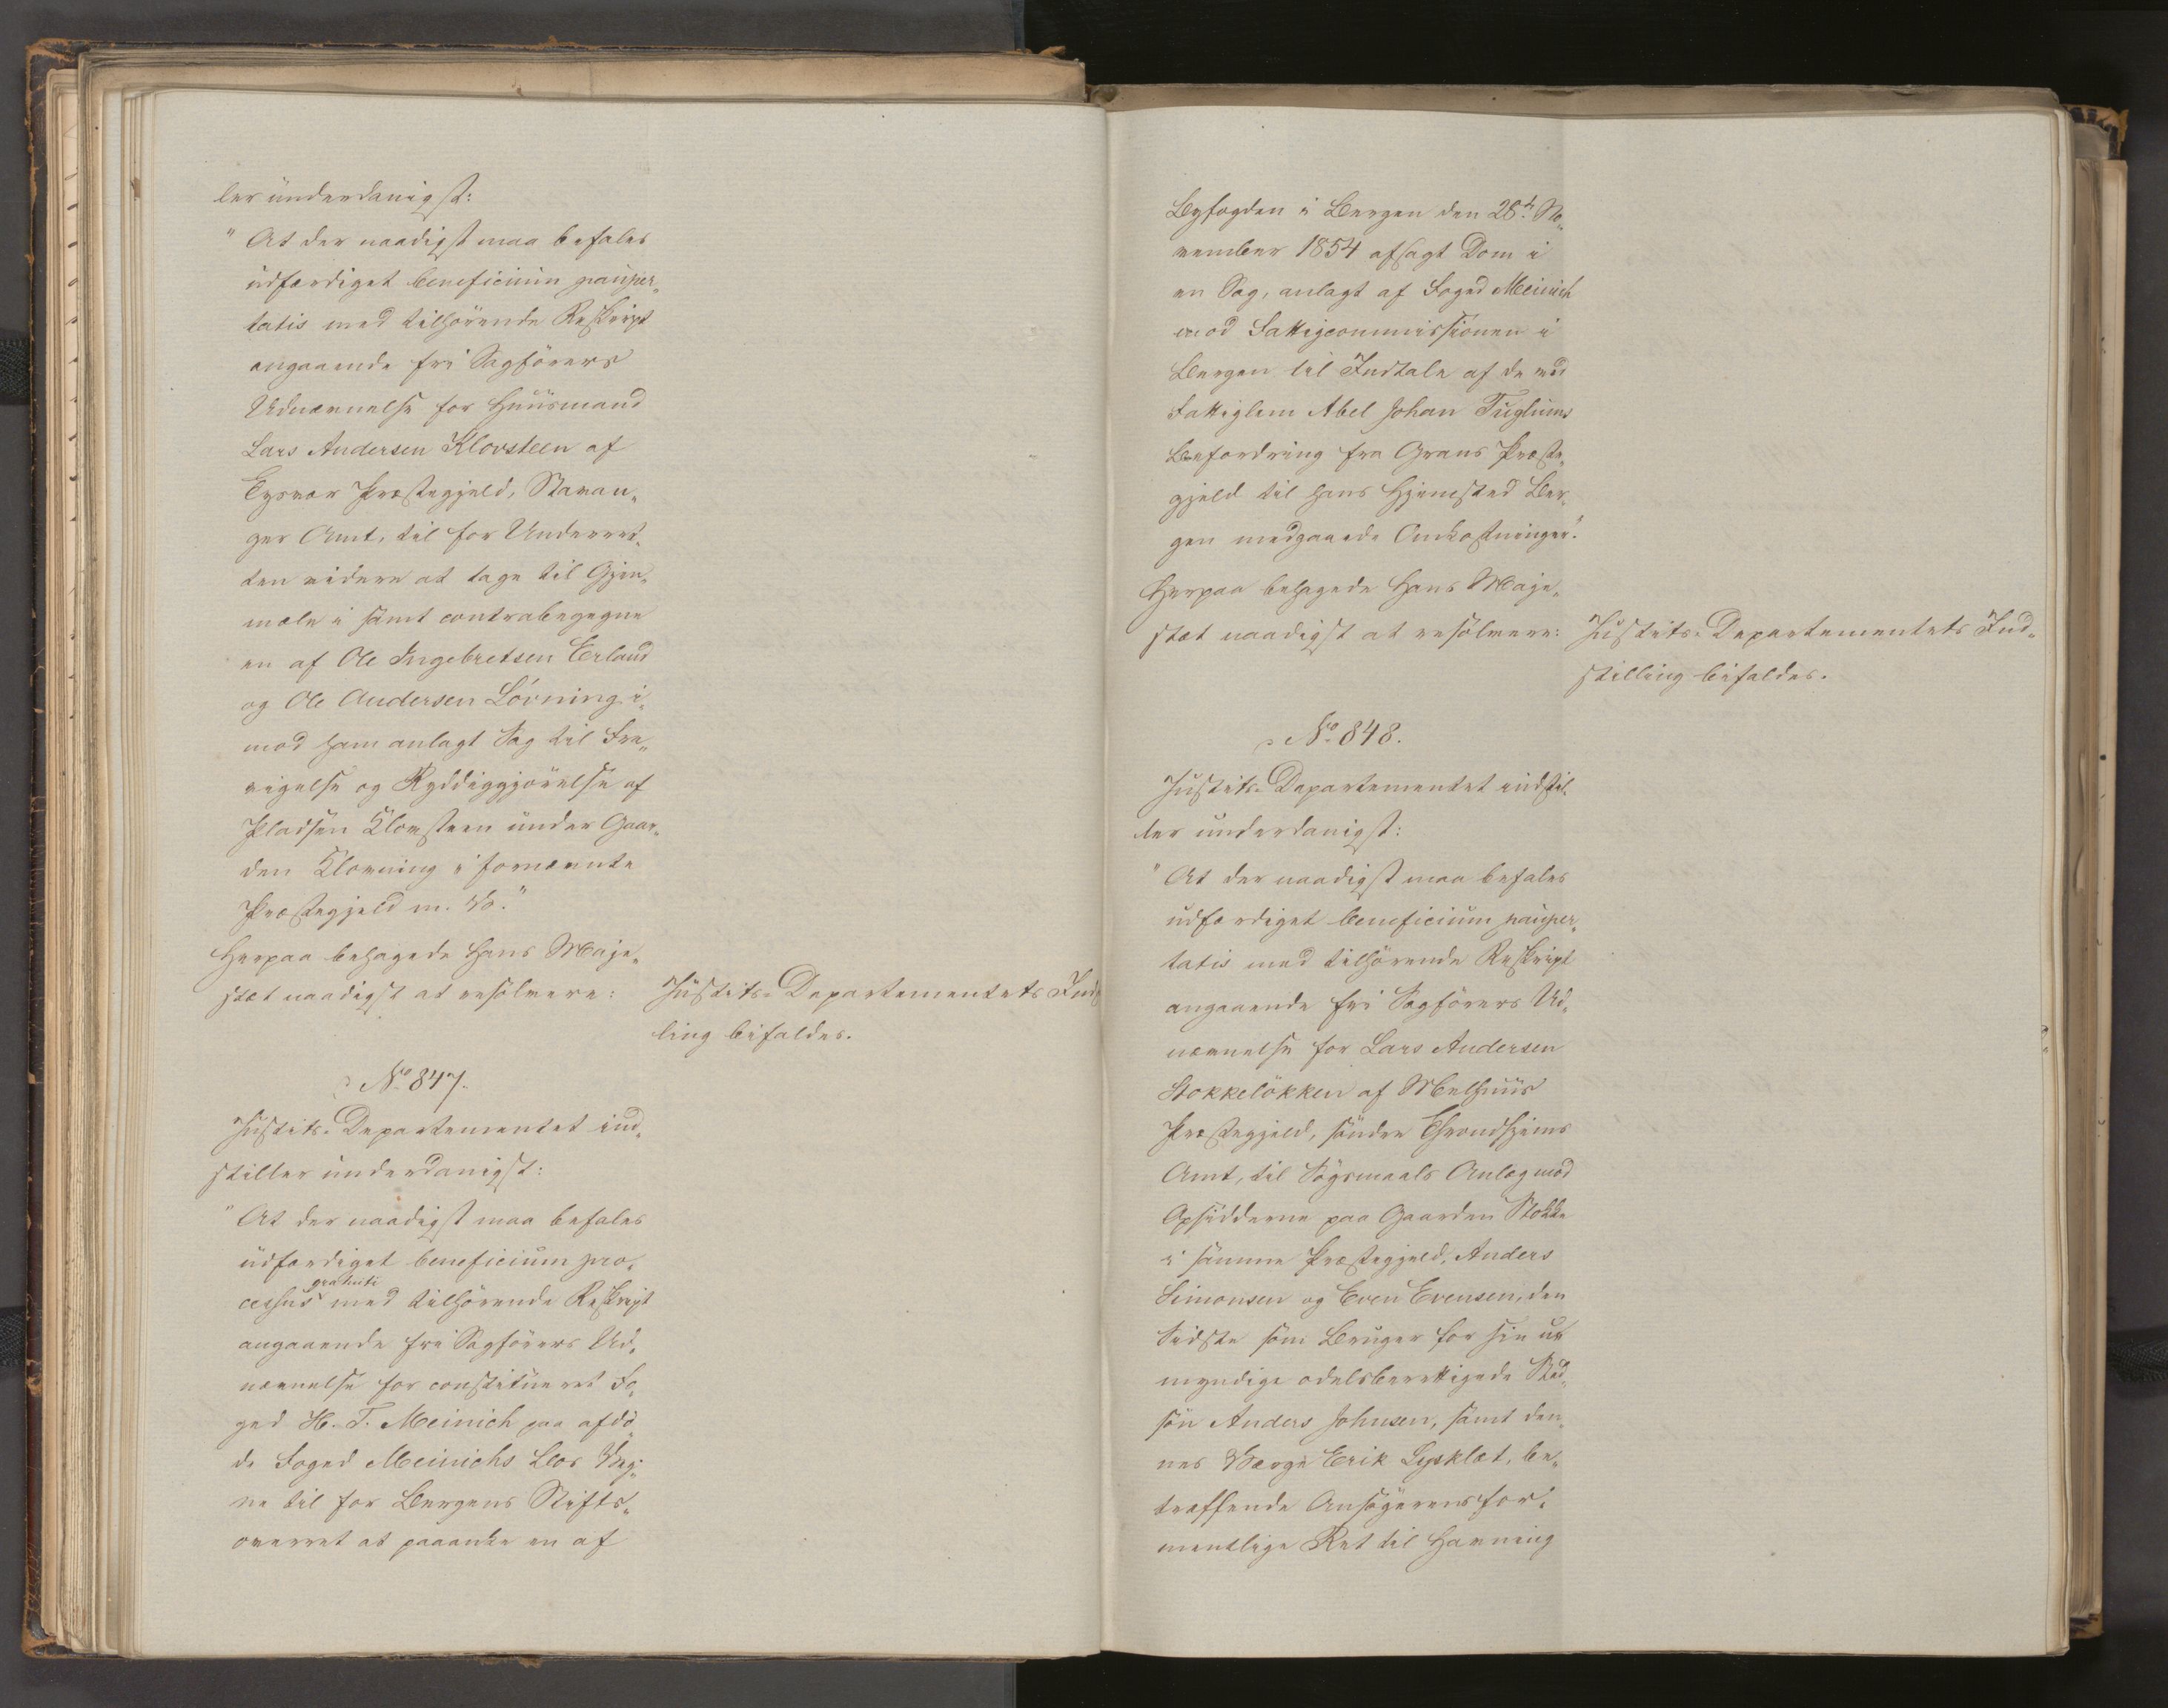 ler underdanigst:
"At der naadigst maa befales
udfærdiget beneficium pauper„
tatis med tilhörende Reskript
angaaende fri Sagförers
Udnævnelse for Huusmand
Lars Andersen Klovsteen af
Tysvær Præstegjeld, Stavan„
ger Amt, til for Underret„
ten videre at tage til Gjen„
mæle i samt contrabegegne
en af Ole Ingebretsen Erland
og Ole Andersen Lövning i„
mod ham anlagt Sag til Fra„
vigelse og Ryddiggjörelse af
Pladsen Klovsteen under Gaar„
den Klovning i fornævnte
Præstegjeld m. V."
Herpaa behagede Hans Maje„
stæt naadigst at resolvere:
Justits-Departementets Inds
ling bifaldes.
No 847.
Justits-Departementet ind„
stiller underdanigst:
"At der naadigst maa befales
udfærdiget beneficium pro„
cessus gratuiti med tilhörende Reskript
angaaende fri Sagförers Ud„
nævnelse for constitueret Fo„
ged H. T. Meinich paa afdö„
de Foged Meinichs Bos Veg„
ne til for Bergens Stifts„
overret at paaanke en af
Byfogden i Bergen den 28d No„
vember 1854 afsagt Dom i
en Sag, anlagt af Foged Meinich
mod Fattigcommissionen i
Bergen til Indtale af de ved
Fattiglem Abel Johan Tuglums
Befordring fra Grans Præste„
gjeld til hans Hjemsted Ber„
gen medgaaede Omkostninger."
Herpaa behagede Hans Maje„
stæt naadigst at resolvere:
Justits-Departementets Ind„
stilling bifaldes.
No 848.
Justits-Departementet indstil„
ler underdanigst:
"At der naadigst maa befales
udfærdiget beneficium pauper„
tatis med tilhörende Reskript
angaaende fri Sagförers Ud„
nævnelse for Lars Andersen
Stokkelökken af Melhuus
Præstegjeld, söndre Throndhjems
Amt, til Sögsmaals Anlæg mod
Opsidderne paa Gaarden Stokke
i samme Præstegjeld, Anders
Simonsen og Even Evensen, den
Sidste som Bruger for sin u„
myndige odelsberettigede Sted„
sön Anders Johnsen, samt den„
nes Værge Erik Lysklæt, be„
træffende Ansögerens for„
mentlige Ret til Havning